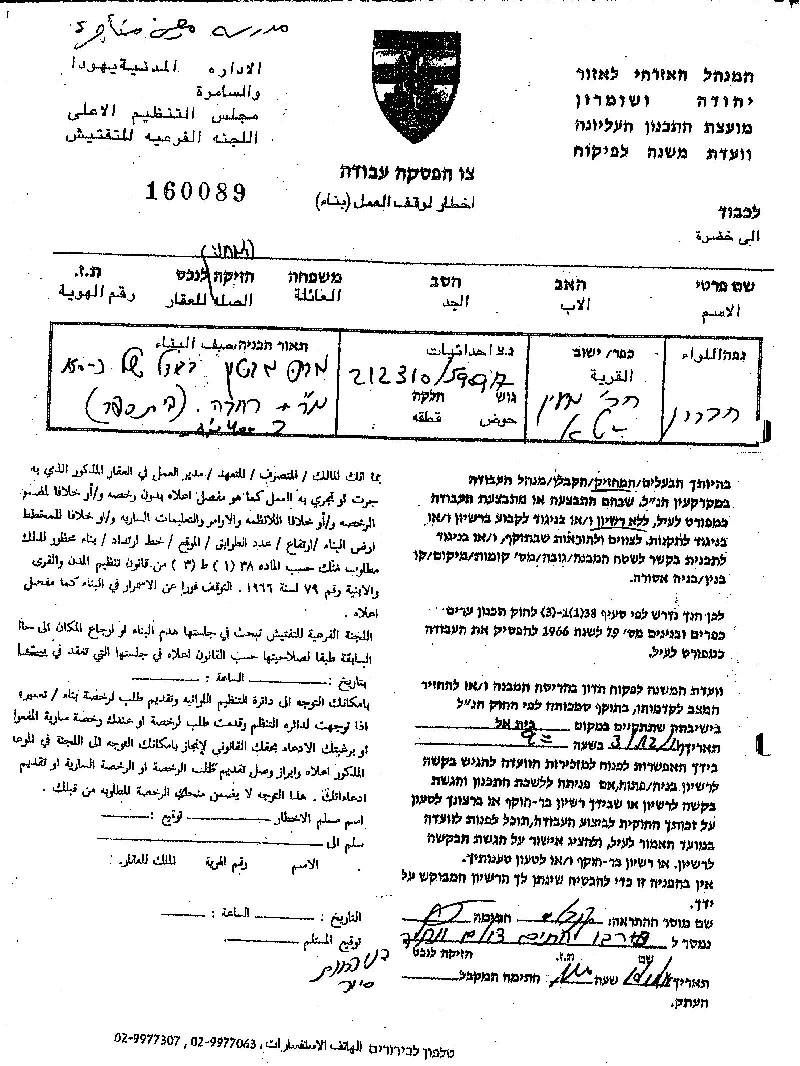 مدرسة
الاداره المدنية يهودا
والسامرة
مجلس التنظيم الاعلى
اللجنه الفرعيه للتفتيش
המנהל האזרחי לאזור
יהודה ושומרון
מועצת התכנון העליונה
וועדת משנה לפיקוח
צו הפסקה עבודה
اخطار لوقف العمل (بناء)
160089
לכבוד
الى حضرة
שם פרטי האב הסב משפחה הזיקה לנכס ת.ז.
الاسم الاب الجد العائلة الصله للعقار رقم الهوية
נפה/اللواء
חברון
כפר/ישוב
القرية
חר'
יטא
נ.צ احداثيات
212310/59097
גוש חלקה
حوض قطعه
תאור הבניה/وصف البناء
של כ-150
מ"ר + (בית ספר)
בהיותך הבעלים/המחזיק/הקבלן/מנהל העבודה
במקרקעין הנ"ל, שבהם התבצעה או מתבצעת העבודה
כמפורט לעיל, ללא רשיון ו/או בניגוד לקבוע ברשיון ו/או
בניגוד לתקנות, לצווים ולהוראות שבתוקף, ו/או בניגוד
לתכנית בקשר לשטח המבנה/גובה/מס' קומות/מיקום/קו
בנין/בניה אסורה.
לכן הנך נדרש לפי סעיף 38(1)(ב-3) לחוק תכנון ערים
כפרים ובנינים מס' 79 לשנת 1966 להפסיק את העבודה
כמפורט לעיל.
וועדת המשנה לפקוח תדון בהריסת המבנה ו/או להחזיר
המצב לקדמותו, בתוקף סמכותה לפי החוק הנ"ל
בישיבתה שתתקיים במקום בית אל
תאריך בשעה
בידך האפשרות לפנות למזכירות הוועדה להגיש בקשה
לרשיון בניה/פתוח, אם פנית ללשכת התכנון והגשת
בקשה לרשיון או שבידך רשיון בר-תוקף או ברצונך לטעון
על זכותך החוקית לביצוע העבודה, תוכל לפנות לוועדה
במועד האמור לעיל, ולהציג אישור על הגשת הבקשה
לרשיון, או רשיון בר-תוקף ו/או לטעון טענותיך.
אין בהפניה זו כדי להבטיח שינתן לך הרשיון המבוקש על
ידך.
שם מוסר ההתראה: חתימה
נמסר ל
שם ת.ז. הזיקה לנכס
תאריך שעה חתימת המקבל
העתק.
بما انك المالك / المتصرف / المتعهد / مدير العمل في العقار المذكور الذي به
جرت او تجري به العمل كما هو مفصل اعلاه بدون رخصه و/أو خلافا
الرخصه و/أو خلافا للانظمه والاوامر والتعليمات الساريه و/أو خلافا للمخطط
ارض البناء /ارتفاع / عدد الطوابق / الموقع / خط ارتداد / بناء محظور لذلك
مطلوب منك حسب الماده ٣٨ (١) ط (٣) من قانون تنظيم المدن والقرى
والابنية رقم ٧٩ لسنة ١٩٦٦ . التوقف فورا عن الاستمرار في البناء كما مفصل
اعلاه .
اللجنة الفرعية للتفتيش تبحث في جلستها هدم البناء او ارجاع المكان الى
السابقة طبقا لصلاحيتها حسب القانون اعلاه في جلستها التي تعقد في
بتاريخ : الساعة :
بامكانك التوجه الى دائرة التنظيم اللوائيه وتقديم طلب لرخصة بناء / تعمير
اذا توجهت لدائره التنظيم وقدمت طلب لرخصة او عندك رخصة سارية
او برغبتك الادعاء بحقك القانوني لإنجاز بامكانك التوجه الى اللجنة في
المذكور اعلاه وابراز وصل تقديم طلب الرخصة او الرخصة السارية او تقديم
ادعاءاتك . هذا التوجه لا يضمن منحك الرخصة المطلوبه من قبلك .
اسم مسلم الاخطار : توقيع :
سلم الى
الاسم رقم الهوية المالك للعقار :
التاريخ : الساعة :
توقيع المستلم
טלפון לבירורים الهاتف للاستفسارات، 02-9977063, 02-9977307